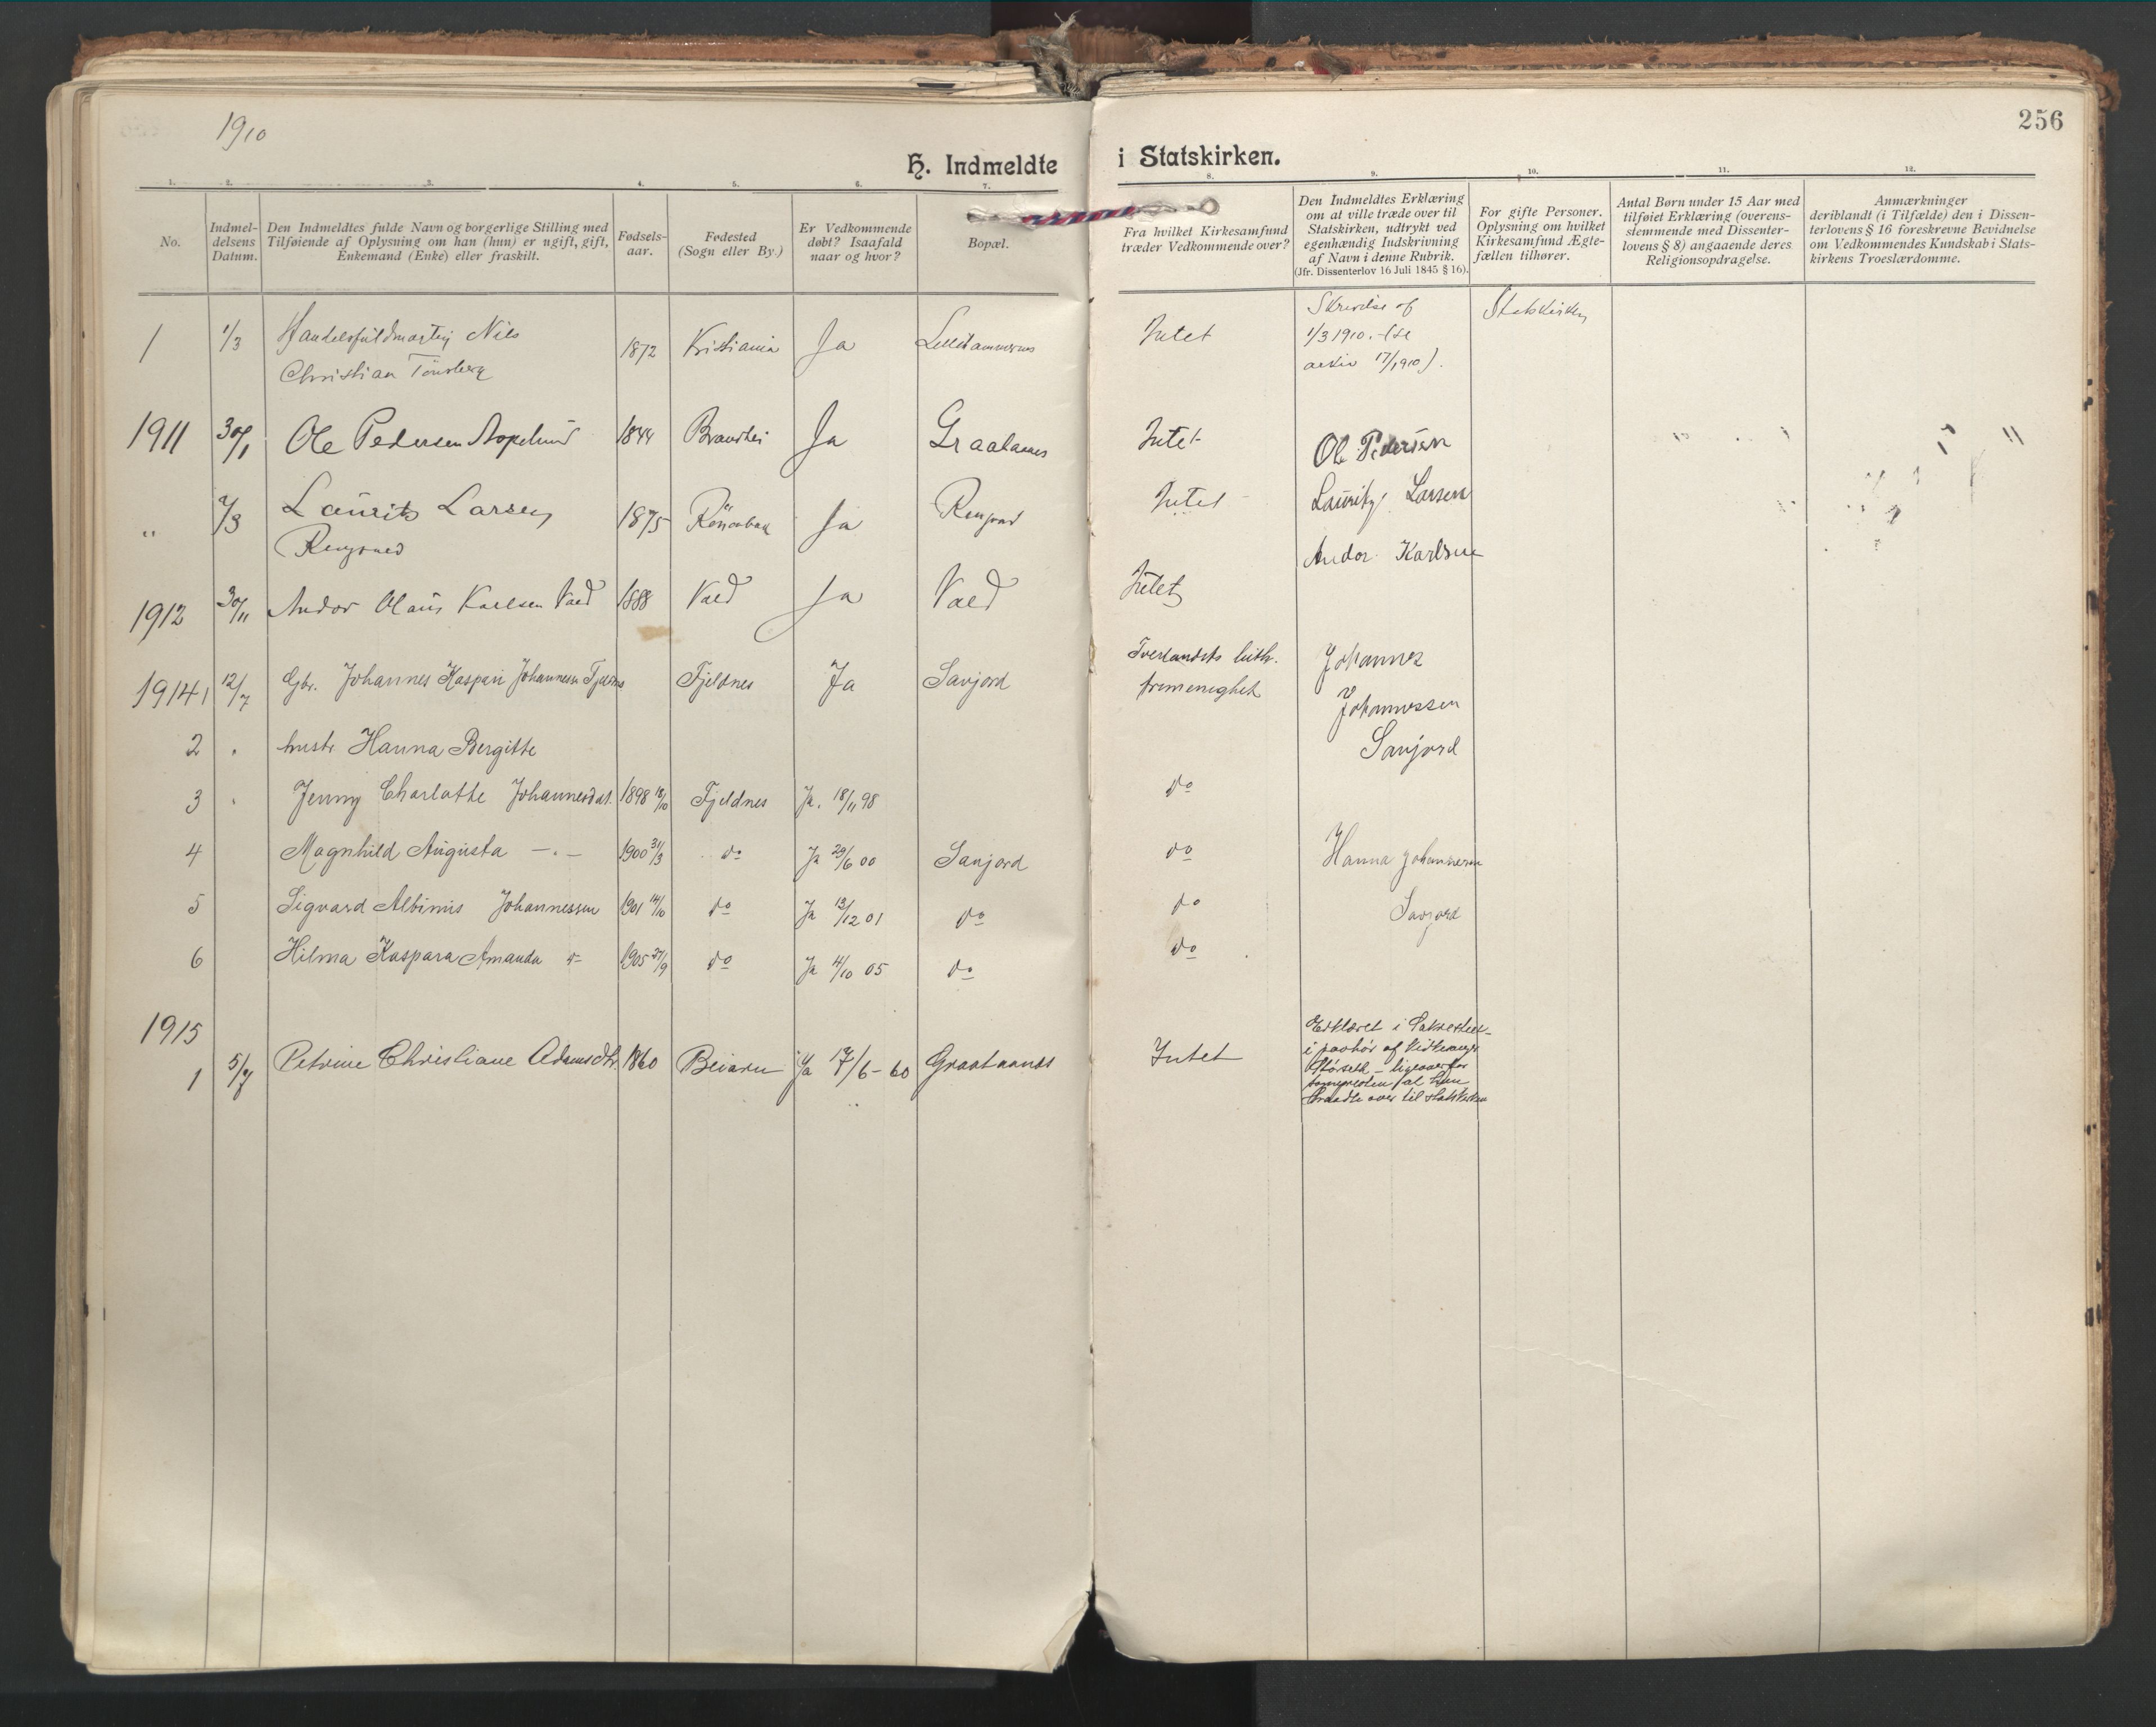 1910
256
H. Indmeldte i Statskirken.
1. 2. 3. 4. 5. 6. 7. 8. 9. 10. 11. 12.
No.
Indmel-
delsens
Datum.
Den Indmeldtes fulde Navn og borgerlige Stilling med
Tilføiende af Oplysning om han (hun) er ugift, gift,
Enkemand (Enke) eller fraskilt.
Fødsels-
aar.
Fødested
(Sogn eller By.)
Er Vedkommende
døbt? Isaafald
naar og hvor?
Bopæl.
Fra hvilket Kirkesamfund
træder Vedkommende over?
Den Indmeldtes Erklæring
om at ville træde over til
Statskirken, udtrykt ved
egenhændig Indskrivning
af Navn i denne Rubrik.
(Jfr. Dissenterlov 16 Juli 1845 § 16).
For gifte Personer.
Oplysning om hvilket
Kirkesamfund Ægte-
fællen tilhører.
Antal Børn under 15 Aar med
tilføiet Erklæring (overens-
stemmende med Dissenter-
lovens § 8) angaaende deres
Religionsopdragelse.
Anmærkninger
deriblandt (i Tilfælde) den i Dissen-
terlovens § 16 foreskrevne Bevidnelse
om Vedkommendes Kundskab i Stats-
kirkens Troeslærdomme.
1 1/3 Handelsfuldmægtig Nils
Christian Tönsberg 1872 Kristiania Ja Intet
Skrivelse af
1/3 1910. - (se
arkiv 17/1910).
Statskirken
1911 30/1 Ole Pedersen 1844 Ja Graatanes Intet Ole Pedersen
" 2/3 Laurits Larsen
Rengaard 1875 Ja Intet Lauritz Larsen
1912 30/11 Andor Olaus Karlsen Vold 1888 Vold Ja Vold Intet Andor Karlsen
1914 1 12/7 Gbr. Johannes Kaspari Johannesen Fjeldnes Fjeldnes Ja Savjord
Tverlandets luth.
frimenighet
Johannes
Johannessen
Savjord
2 " hustr Hanna Bergitte
3 " Jenny Charlotte Johannesdat. 1898 18/10 Fjeldnes Ja. 18/11 98 do
4 Magnhild Augusta -"- 1900 31/3 do Ja 29/6 00 Savjord do Hanna Johannesen
Savjord
5 Sigvard Albinus Johannessen 1901 14/10 do Ja 13/12 01 do do
6 Hilma Kaspara Amanda 1905 27/9 do Ja 4/10 05 do do
1915
1 5/7 Petrine Christiane Adamsdtr. 1860 Beiarn Ja 17/6-60 Graatanes Intet
Erklæret i
i paahør af
Storseth - ligeoverfor
sognepresten at hun
traadte over til statskirken